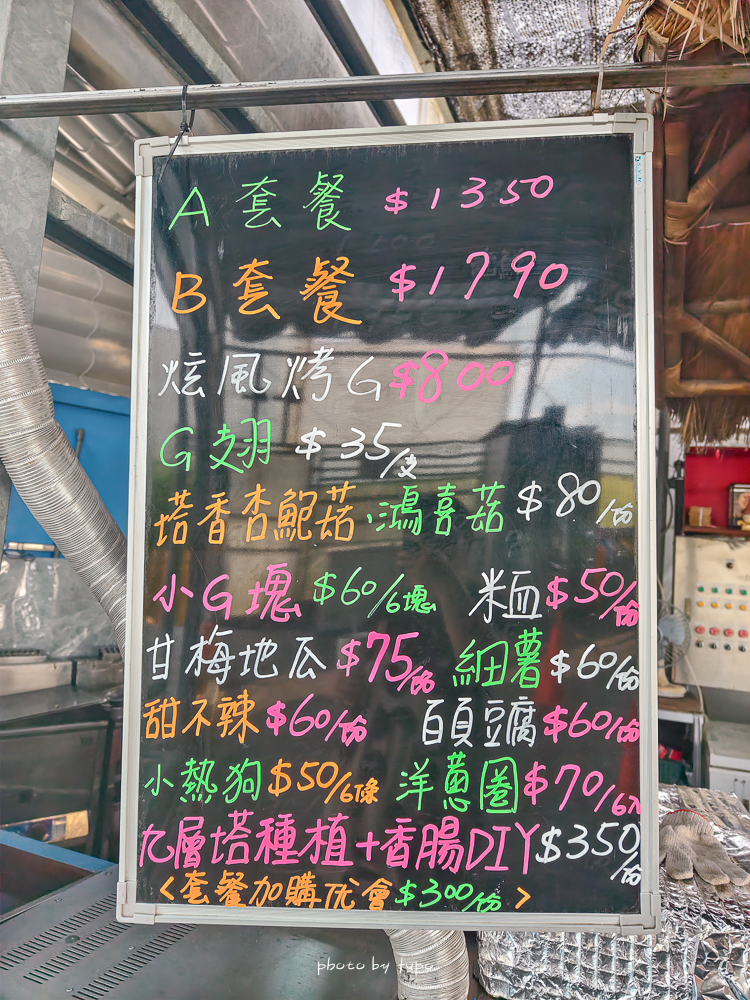 A套餐 $1350
B套餐 $1790
炫風烤G $800
G翅 $35/支
塔香杏鮑菇.鴻喜菇 $80/份
小G塊 $60/6塊 米血 $50/份
甘梅地瓜 $75/份 細薯 $60/份
甜不辣 $60/份 百頁豆腐 $60/份
小熱狗 $50/6條 洋蔥圈 $70/6入
九層塔種植+香腸DIY $350/份
<套餐加購优會 $300/份>
photo by tupa